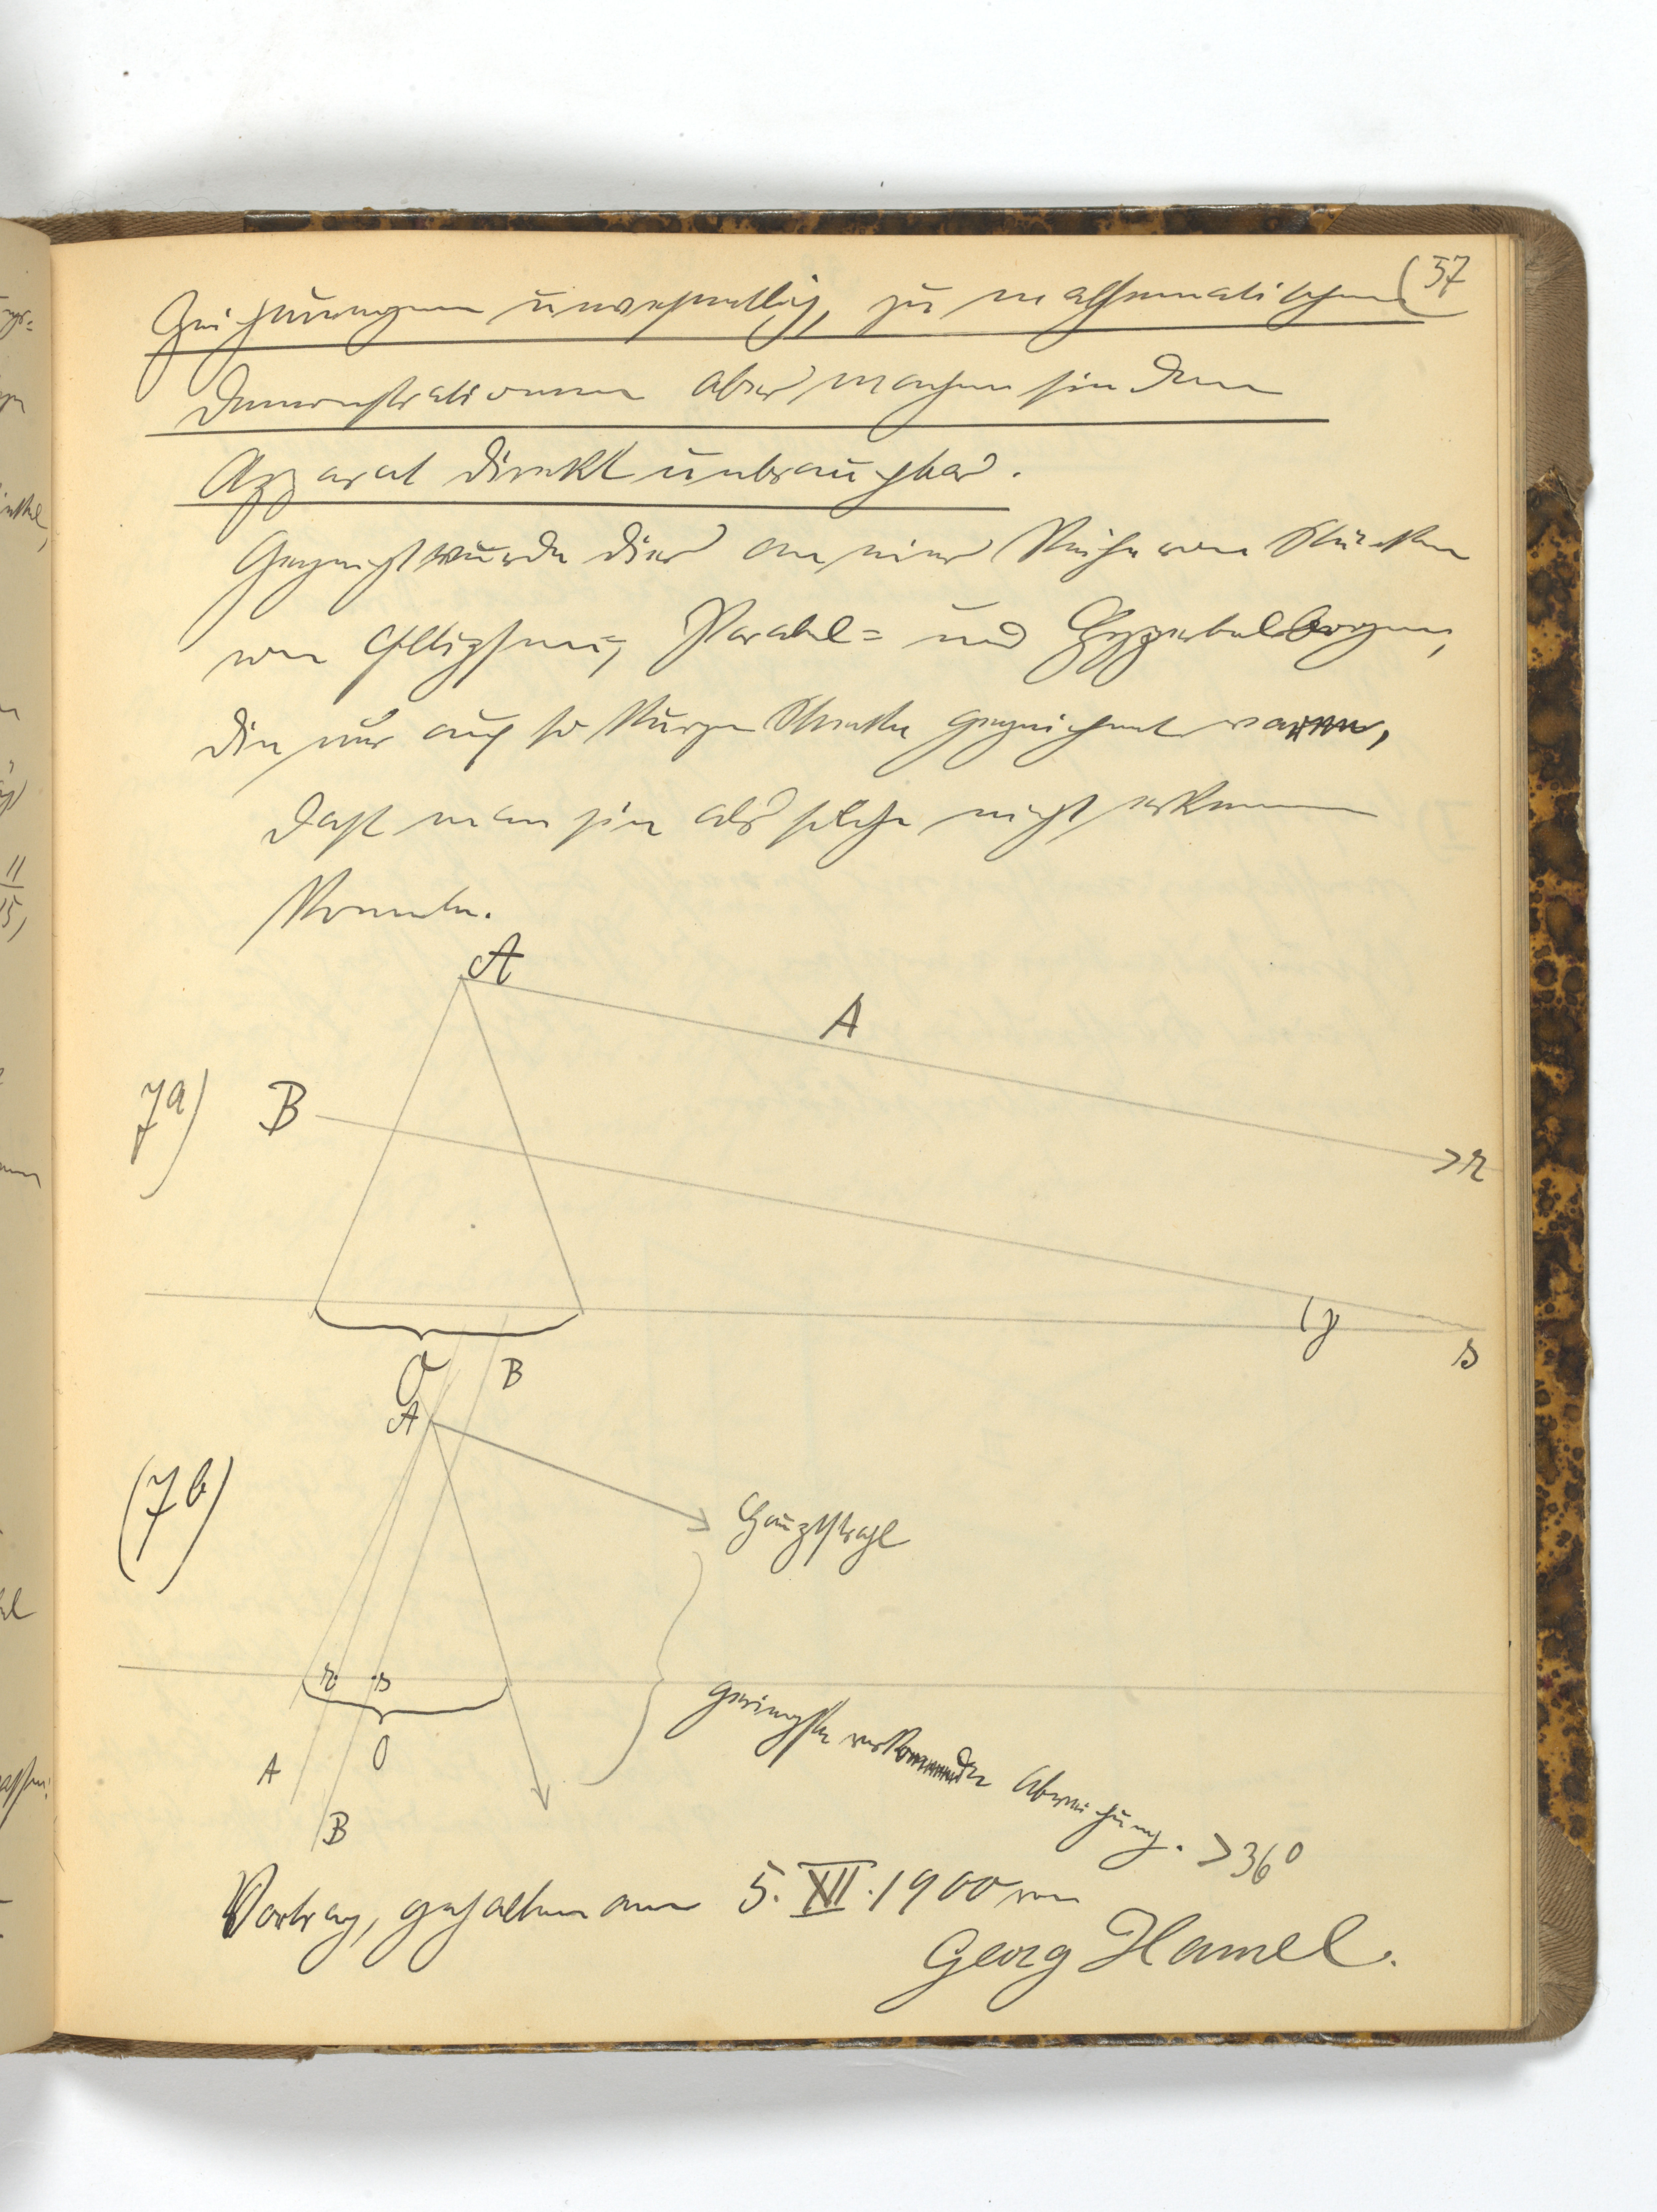 (57
Zeichnungen unwesentlich, zu mathematischen
Demonstrationen aber machen sie den
Apparat direkt unbrauchbar.
Gezeigt wurde dies an einer Reihe von Stücken
von Ellipsen, Parabel= und Hyperbelbogen,
die nur auf so kurzer Strecke gezeichnet waren,
daß man sie als solche nicht erkennen
konnte.
A
A
7a)
B
r
γ
s
O
B
A
(7b)
Hauptstrahl
r
s
O
geringste vorkommende Abweichung. >36°
A
B
Vortrag, gehalten am 5. XII. 1900 von
Georg Hamel.